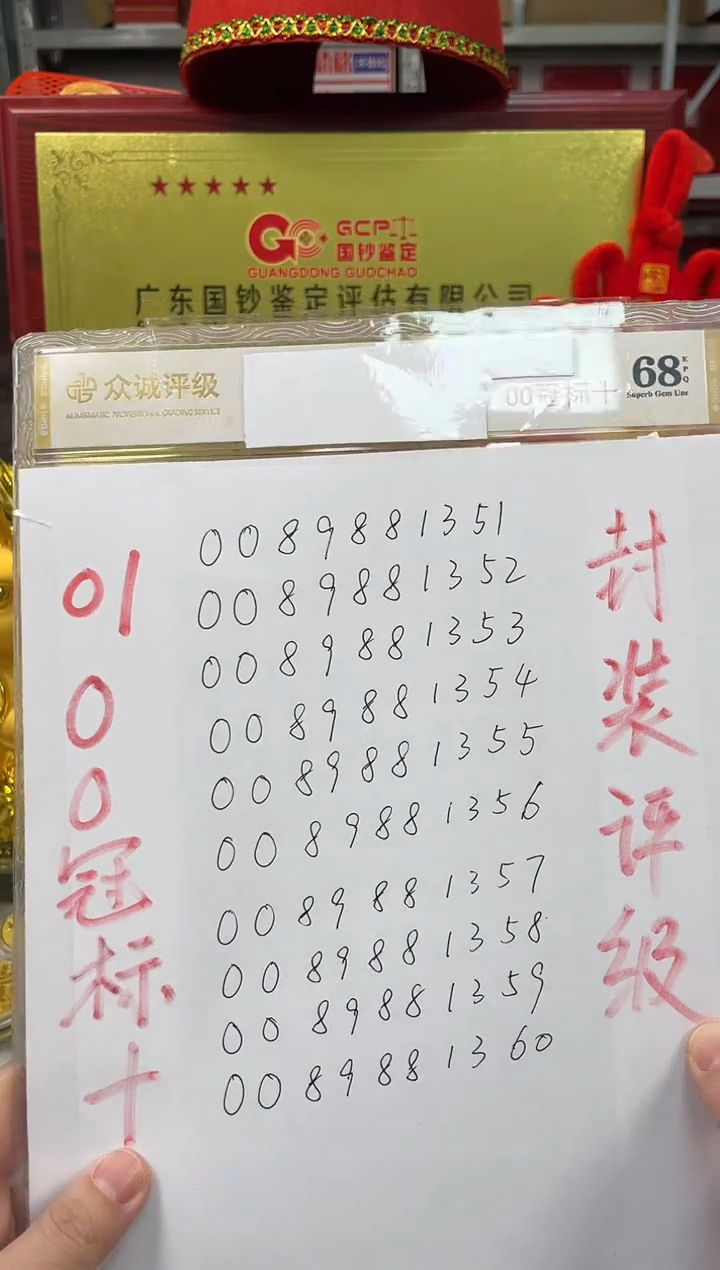 ★★★★★
GCP
国钞鉴定
GUANGDONG GUOCHAO
广东国钞鉴定评估有限公司
众诚评级
NUMISMATIC PROFESSIONAL GRADING SERVICE
00冠标十
68 EPQ
Superb Gem Unc
01
0
0
冠
标
十
0089881351
0089881352
0089881353
0089881354
0089881355
0089881356
0089881357
0089881358
0089881359
0089881360
封
装
评
级